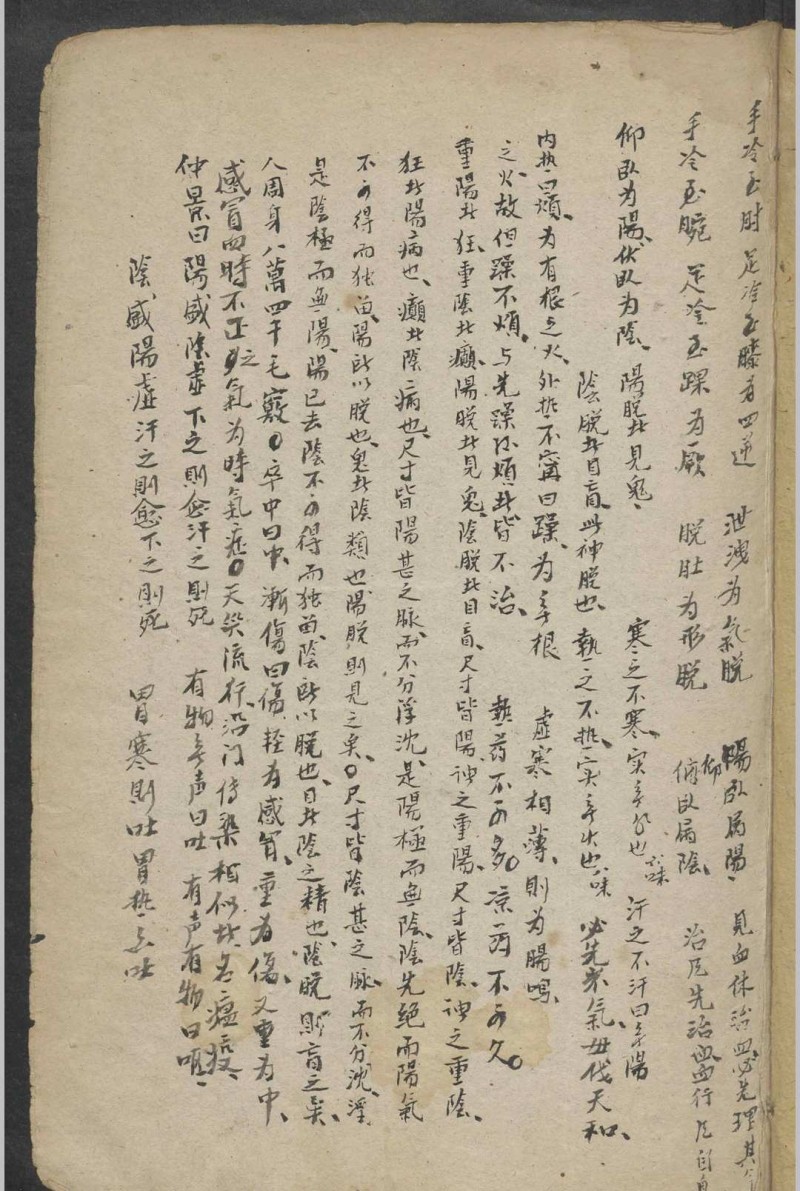 手冷至肘 足冷至膝为四逆 泄洩为氣脱 陽臥屬陽、 見血休治血必先理其
手冷至腕 足冷至踝为厥 脱肚为形脱 俯臥屬陰、仰 治尼先治血血行尼自
仰臥为陽、伏臥为陰、陽脱者見鬼、 寒之不寒、实無水也、六味 汗之不汗曰無陽
陰脱者目盲、此神脱也、 热之不热、实無火也、八味 必先岁氣、毋伐天和、
内热曰煩、为有根之火、外热不寧曰躁、为無根 虚寒相薄、則为腸鳴、
之火、故但躁不煩、与先躁後煩者皆不治、 热药不可多。凉药不可久。
重陽者狂、重陰者癲、陽脱者見鬼、陰脱者目盲、尺寸皆陽、謂之重陽、尺寸皆陰、謂之重陰、
狂者陽病也、癲者陰病也、尺寸皆陽甚之脉、而不分浮沈、是陽極而無陰、陰先绝而陽氣
不可得而独留、陽所以脱也、鬼者陰類也、陽脱則見之矣、。尺寸皆陰甚之脉、而不分沈浮
是陰極而無陽、陽已去陰不可得而独留、陰所以脱也、目者陰之精也、陰脱則盲之矣、
人周身八萬四千毛竅。卒中曰中、漸傷曰傷、輕为感冒、重为傷、又重为中、
感冒四時不正之氣为時氣症。天災流行、沿门传染、相似者名瘟疫、
仲景曰陽盛陰虚下之則愈汗之則死 有物無声曰吐 有声有物曰呕、
陰盛陽虚汗之則愈下之則死 胃寒則吐 胃热亦吐